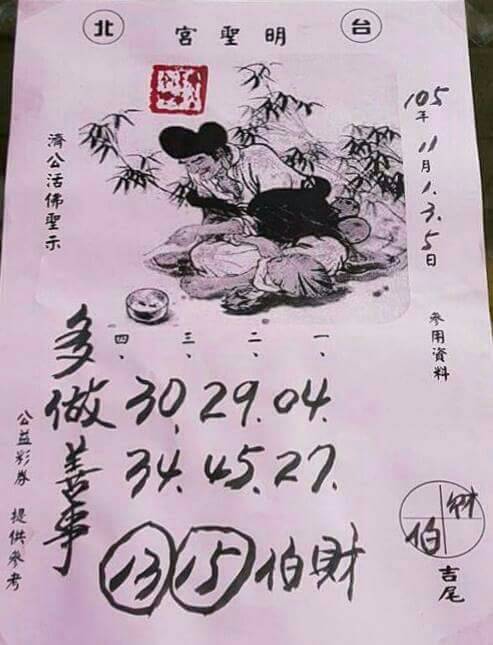 台北
明聖宮
105年11月1.3.5日
參用資料
濟公活佛聖示
一、二、三、四、
04. 29. 30,
27. 45. 34.
財伯
吉尾
多做善事
13 15 伯財
公益彩券 提供參考